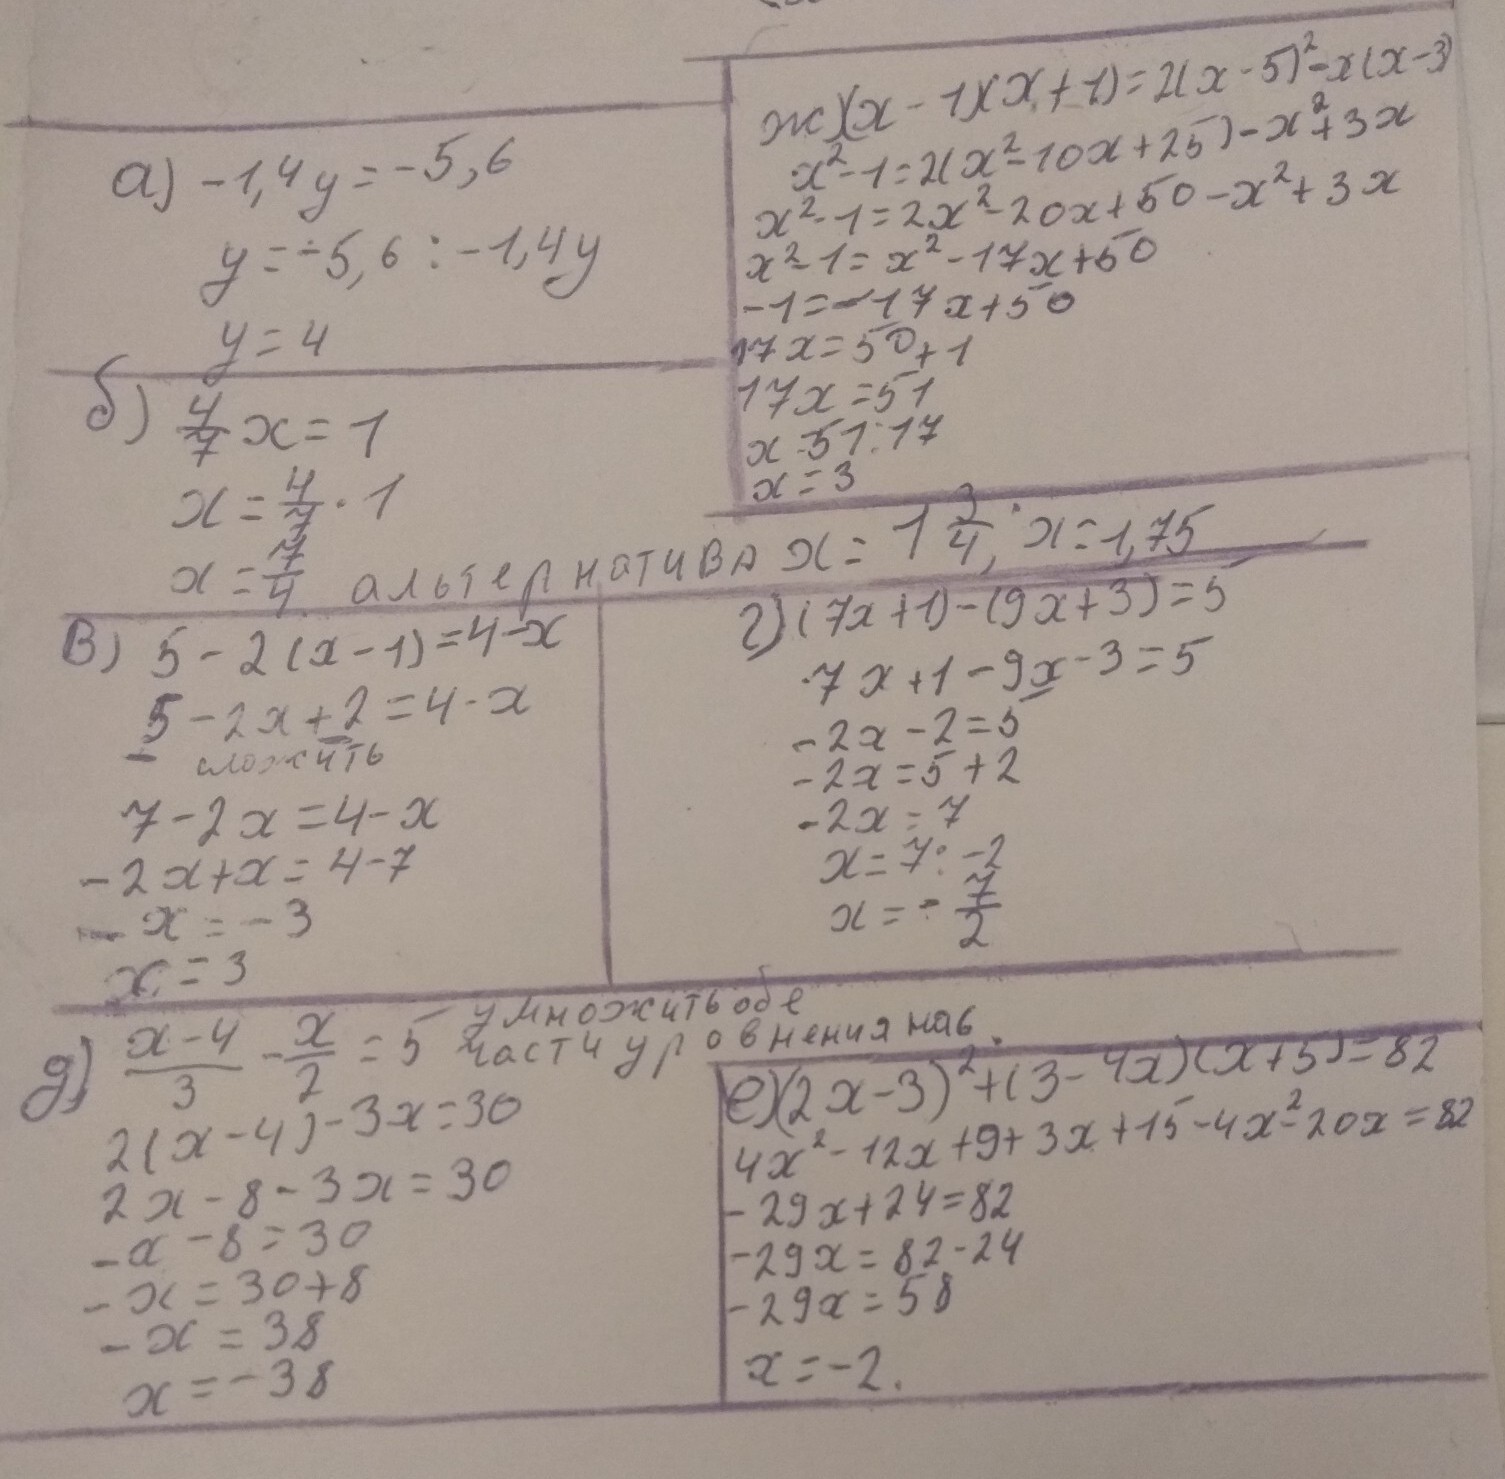 а) -1,4y = -5,6
y = -5,6 : -1,4y
y = 4
б) 4/7 x = 1
x = 4/7 · 1
x = 7/4. альтернатива x = 1 3/4; x = 1,75
в) 5 - 2(x - 1) = 4 - x
5 - 2x + 2 = 4 - x
сложить
7 - 2x = 4 - x
-2x + x = 4 - 7
-x = -3
x = 3
г) (7x + 1) - (9x + 3) = 5
7x + 1 - 9x - 3 = 5
-2x - 2 = 5
-2x = 5 + 2
-2x = 7
x = 7 : -2
x = - 7/2
д) x-4/3 - x/2 = 5 умножить обе
части уровнения на 6.
2(x - 4) - 3x = 30
2x - 8 - 3x = 30
-x - 8 = 30
-x = 30 + 8
-x = 38
x = -38
е) (2x - 3)² + (3 - 4x)(x + 5) = 82
4x² - 12x + 9 + 3x + 15 - 4x² - 20x = 82
-29x + 24 = 82
-29x = 82 - 24
-29x = 58
x = -2.
ж) (x - 1)(x + 1) = 2(x - 5)² - x(x - 3)
x² - 1 = 2(x² - 10x + 25) - x² + 3x
x² - 1 = 2x² - 20x + 50 - x² + 3x
x² - 1 = x² - 17x + 50
-1 = -17x + 50
17x = 50 + 1
17x = 51
x = 51 : 17
x = 3